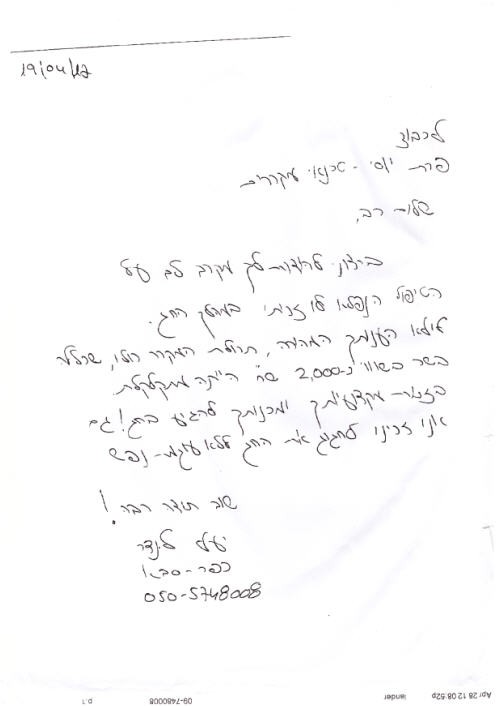 19/04/12
לכבוד
פרת יוסי - טכנאי מקררים
שלום רב,
ברצוני להודות לך מקרב לב על
הטיפול הנפלא לו זכיתי במהלך החג.
לולא הענותך המהירה, תכולת המקרר הכולל, שכללה
בשר בשווי כ-2,000 ש"ח הייתה מתקלקלת.
בזכות מקצועיותך ונכונותך להגיע בחג! גם
אנו זכינו לחגוג את החג ללא עוגמת-נפש
שוב תודה רבה!
יעל לנדר
כפר-סבא
050-5748008
Apr 28 12 08:52p lander 09-7480008 p.1